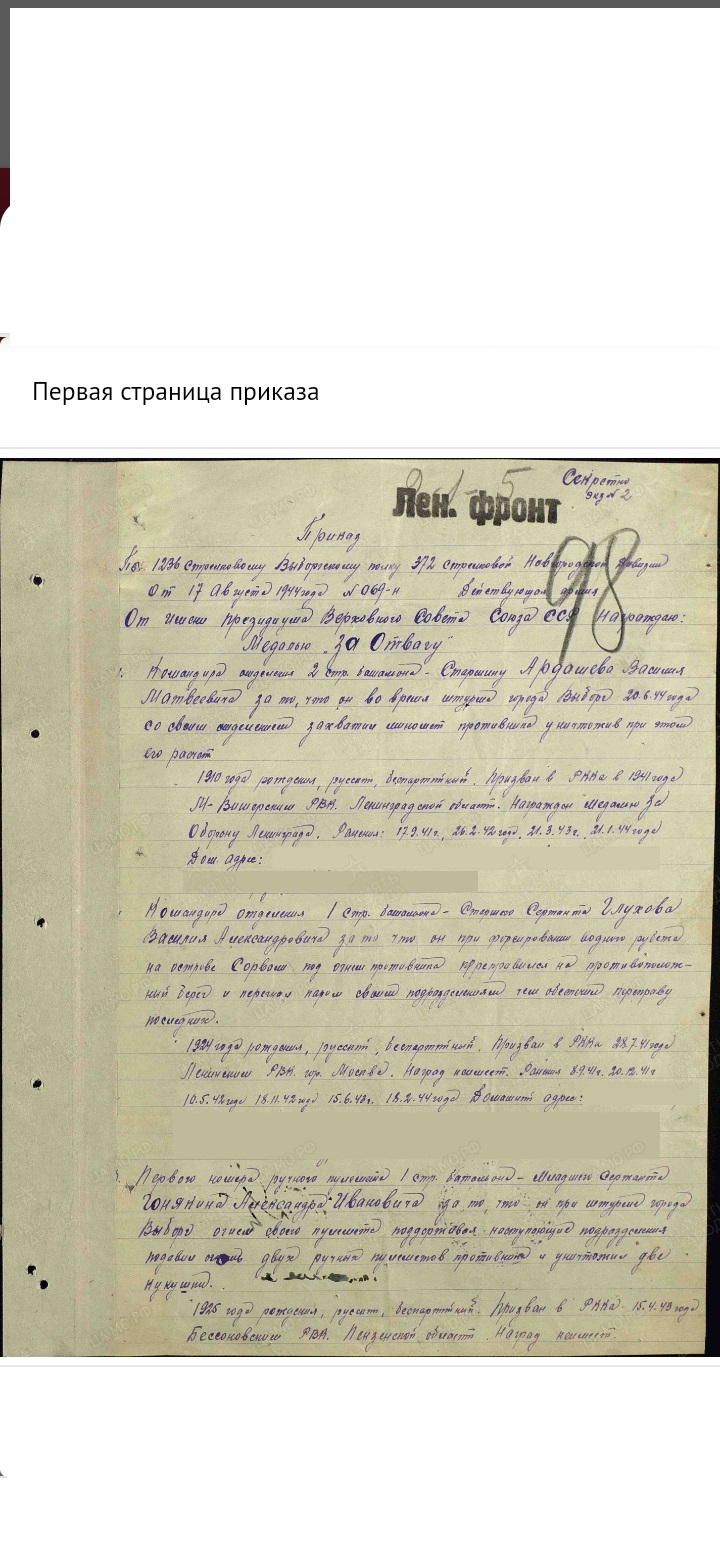 Первая страница приказа
Секретно
экз № 2
Лен. фронт
98
Приказ
По 1236 стрелковому Выборгскому полку 372 стрелковой Новгородской дивизии
От 17 Августа 1944 года № 069-н Действующая армия
От имени президиума Верховного Совета Союза ССР Награждаю:
Медалью „За Отвагу“
1. Командира отделения 2 стр. батальона - Старшину Ардашева Василия
Матвеевича за то, что он во время штурма города Выборг 20.6.44 года
со своим отделением захватил миномет противника уничтожив при этом
его расчет
1910 года рождения, русский, беспартийный. Призван в РККа в 1941 году
М-Вишерским РВК. Ленинградской области. Награжден медалью За
Оборону Ленинграда. Ранения: 17.9.41 г., 26.2.42 год, 21.3.43 г., 21.1.44 года
Дом. адрес:
Командира отделения 1 стр. батальона - Старшего Сержанта Глухова
Василия Александровича за то что он при форсировании водного рубежа
на острове под огнем противника переправился на противополож-
ный берег и перегнал паром своим подразделениям тем обеспечил переправу
последних.
1924 года рождения, русский, беспартийный. Призван в РККа 28.7.41 года
Ленинским РВК. гор. Москва. Наград не имеет. Ранения 8.9.41 г. 20.12.41 г
10.5.42 года 18.11.42 года 15.6.43 г. 18.2.44 года Домашний адрес:
3. Первого номера ручного пулемета 1 стр. батальона - Младшего Сержанта
Александра Ивановича за то, что он при штурме города
Выборг огнем своего пулемета поддерживая наступающие подразделения
подавил огонь двух ручных пулеметов противника и уничтожил две
кукушки.
1925 года рождения, русский, беспартийный. Призван в РККа 15.4.43 года
Бессоновским РВК. Пензенской области. Наград не имеет.